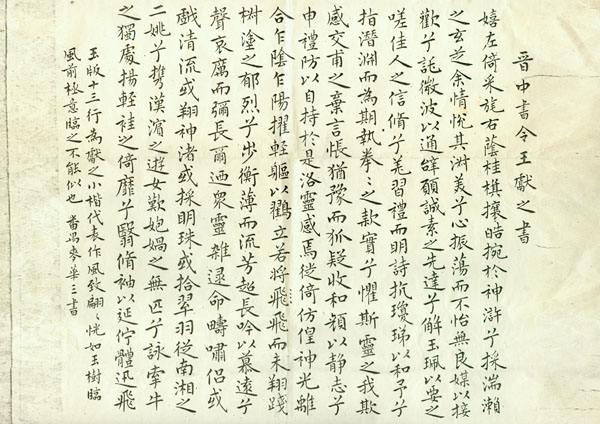 晉中書令王獻之書
嬉左倚采旄右蔭桂棋攘皓捥於神滸兮採湍瀨
之玄芝余情悅其淑美兮心振蕩而不怡無良媒以接
歡兮託微波以通辭願誠素之先達兮解玉珮以要之
嗟佳人之信脩兮羌習禮而明詩抗瓊珶以和予兮
指潛淵而為期執拳〻之款實兮懼斯靈之我欺
感交甫之棄言悵猶豫而狐疑收和顏以静志兮
申禮防以自持於是洛靈感焉徙倚仿偟神光離
合乍陰乍陽擢輕軀以鶴立若將飛飛而未翔踐
椒塗之郁烈兮步衡薄而流芳超長吟以慕遠兮
聲哀厲而彌長爾迺衆靈雜遝命疇嘯侶或
戲清流或翔神渚或採明珠或拾翠羽從南湘之
二姚兮携漢濱之遊女歎匏媧之無匹兮詠牽牛
之獨處揚輕袿之倚靡兮翳脩袖以延佇體迅飛
玉版十三行為獻之小楷代表作風致翩〻恍如玉樹臨
風前極意臨之不能似也 番禺麥華三書